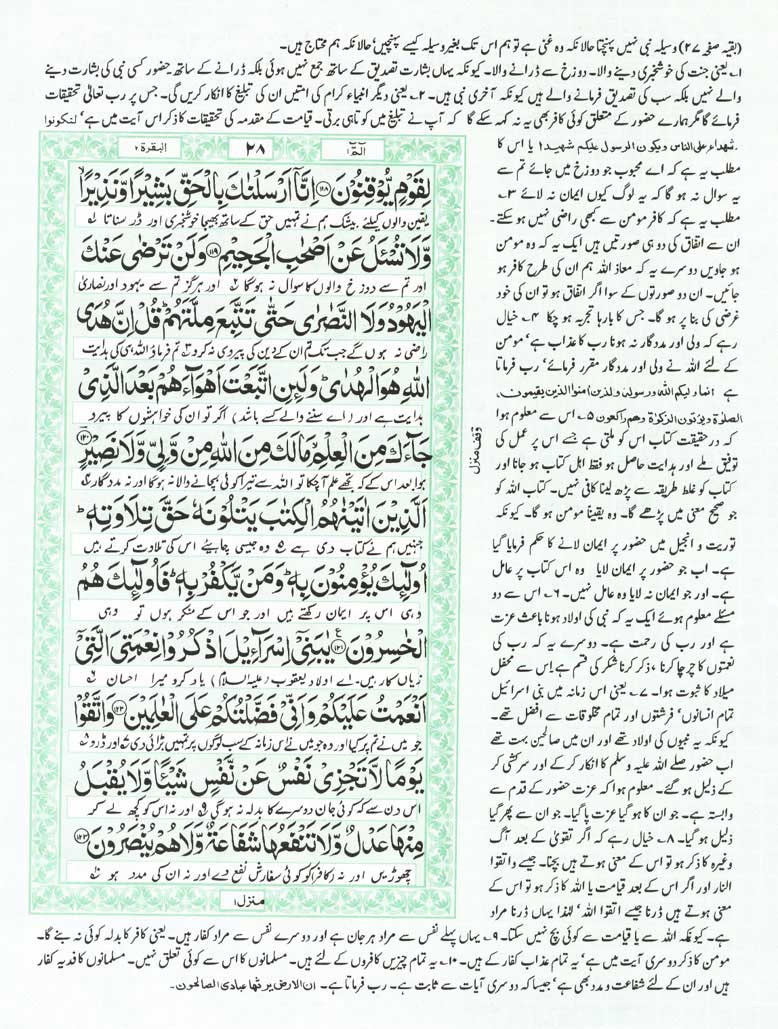 (بقیہ صفحہ ۲۷) وسیلہ نبی نہیں پہنچتا حالانکہ وہ غنی ہے تو ہم اس تک بغیر وسیلہ کیسے پہنچیں، حالانکہ ہم محتاج ہیں۔
۱۔ یعنی جنت کی خوشخبری دینے والا۔ دوزخ سے ڈرانے والا۔ کیونکہ یہاں بشارت تصدیق کے ساتھ جمع نہیں ہوئی بلکہ ڈرانے کے ساتھ حضور کسی نبی کی بشارت دینے
والے نہیں بلکہ سب کی تصدیق فرمانے والے ہیں کیونکہ آخری نبی ہیں۔ ۲۔ یعنی دیگر انبیاء کرام کی امتیں ان کی تبلیغ کا انکار کریں گی۔ جس پر رب تعالیٰ تحقیقات
فرمائے گا مگر ہمارے حضور کے متعلق کوئی کافر بھی یہ نہ کہہ سکے گا کہ آپ نے تبلیغ میں کوتاہی برتی۔ قیامت کے مقدمہ کی تحقیقات کا ذکر اس آیت میں ہے، لتکونوا
شهداء علی الناس ویکون الرسول علیکم شهیدا یا اس کا
مطلب یہ ہے کہ اے محبوب جو دوزخ میں جائے تم سے
یہ سوال نہ ہو گا کہ یہ لوگ کیوں ایمان نہ لائے ۳۔
مطلب یہ ہے کہ کافر مومن سے کبھی راضی نہیں ہو سکتے۔
ان سے اتفاق کی دو ہی صورتیں ہیں ایک یہ کہ وہ مومن
ہو جاویں دوسرے یہ کہ معاذ اللہ ہم ان کی طرح کافر ہو
جائیں۔ ان دو صورتوں کے سوا اگر اتفاق ہو تو ان کی خود
غرضی کی بنا پر ہو گا۔ جس کا بارہا تجربہ ہو چکا ۴۔ خیال
رہے کہ ولی اور مددگار نہ ہونا رب کا عذاب ہے، مومن
کے لئے اللہ نے ولی اور مددگار مقرر فرمائے، رب فرماتا
ہے انما ولیکم الله ورسوله والذین امنوا الذین یقیمون
الصلوة ویؤتون الزکوة وهم راکعون ۵۔ اس سے معلوم ہوا
کہ درحقیقت کتاب اس کو ملتی ہے جسے اس پر عمل کی
توفیق ملے اور ہدایت حاصل ہو فقط اہل کتاب ہو جانا اور
کتاب کو غلط طریقہ سے پڑھ لینا کافی نہیں۔ کتاب اللہ کو
جو صحیح معنی میں پڑھے گا۔ وہ یقیناً مومن ہو گا۔ کیونکہ
توریت و انجیل میں حضور پر ایمان لانے کا حکم فرمایا گیا
ہے۔ اب جو حضور پر ایمان لایا وہ اس کتاب پر عامل
ہے۔ اور جو ایمان نہ لایا وہ عامل نہیں۔ ۶۔ اس سے دو
مسئلے معلوم ہوئے ایک یہ کہ نبی کی اولاد ہونا باعث عزت
ہے اور رب کی رحمت ہے۔ دوسرے یہ کہ رب کی
نعمتوں کا چرچا کرنا، ذکر کرنا شکر کی قسم ہے اس سے محفل
میلاد کا ثبوت ہوا۔ ۷۔ یعنی اس زمانہ میں بنی اسرائیل
تمام انسانوں، فرشتوں اور تمام مخلوقات سے افضل تھے۔
کیونکہ یہ نبیوں کی اولاد تھے اور ان میں صالحین بہت تھے
اب حضور صلے اللہ علیہ وسلم کا انکار کر کے اور سرکشی کر
کے ذلیل ہو گئے۔ معلوم ہوا کہ عزت حضور کے قدم سے
وابستہ ہے۔ جو ان کا ہو گیا عزت پا گیا۔ جو ان سے پھر گیا
ذلیل ہو گیا۔ ۸۔ خیال رہے کہ اگر تقویٰ کے بعد آگ
وغیرہ کا ذکر ہو تو اس کے معنی ہوتے ہیں بچنا۔ جیسے واتقوا
النار اور اگر اس کے بعد قیامت یا اللہ کا ذکر ہو تو اس کے
معنی ہوتے ہیں ڈرنا جیسے اتقوا اللہ، لہٰذا یہاں ڈرنا مراد
البقرة ۲
۲۸
الٓمّٓ ۱
لِقَوْمٍ يُّوْقِنُوْنَ ﴿۱۱۸﴾ اِنَّآ اَرْسَلْنٰكَ بِالْحَقِّ بَشِيْرًا وَّنَذِيْرًا ۙ
یقین والوں کیلئے بیشک ہم نے تمہیں حق کے ساتھ بھیجا خوشخبری اور ڈر سناتا ۱
وَّلَا تُسْـَٔلُ عَنْ اَصْحٰبِ الْجَحِيْمِ ﴿۱۱۹﴾ وَلَنْ تَرْضٰى عَنْكَ
اور تم سے دوزخ والوں کا سوال نہ ہوگا ۲ اور ہرگز تم سے یہود اور نصاریٰ
الْيَهُوْدُ وَلَا النَّصٰرٰى حَتّٰى تَتَّبِعَ مِلَّتَهُمْ ؕ قُلْ اِنَّ هُدَى
راضی نہ ہوں گے جب تک تم ان کے دین کی پیروی نہ کرو ۳ تم فرما دو اللہ ہی کی ہدایت
اللّٰهِ هُوَ الْهُدٰى ؕ وَلَئِنِ اتَّبَعْتَ اَهْوَآءَهُمْ بَعْدَ الَّذِيْ
ہدایت ہے اور (اے سننے والے کسے باشد) اگر تو ان کی خواہشوں کا پیرو
جَآءَكَ مِنَ الْعِلْمِ ۙ مَا لَكَ مِنَ اللّٰهِ مِنْ وَّلِيٍّ وَّلَا نَصِيْرٍ ﴿۱۲۰﴾
ہوا بعد اس کے کہ تجھے علم آچکا تو اللہ سے تیرا کوئی بچانے والا نہ ہوگا اور نہ مددگار ۴
وقف منزل
اَلَّذِيْنَ اٰتَيْنٰهُمُ الْكِتٰبَ يَتْلُوْنَهٗ حَقَّ تِلَاوَتِهٖ ؕ
جنہیں ہم نے کتاب دی ہے ۵ وہ جیسی چاہیئے اس کی تلاوت کرتے ہیں
اُولٰٓئِكَ يُؤْمِنُوْنَ بِهٖ ؕ وَمَنْ يَّكْفُرْ بِهٖ فَاُولٰٓئِكَ هُمُ
وہی اس پر ایمان رکھتے ہیں اور جو اس کے منکر ہوں تو وہی
الْخٰسِرُوْنَ ﴿۱۲۱﴾ يٰبَنِيْٓ اِسْرَآءِيْلَ اذْكُرُوْا نِعْمَتِيَ الَّتِيْٓ
زیاں کار ہیں۔ اے اولاد یعقوب (علیہ السلام) یاد کرو میرا احسان ۶
اَنْعَمْتُ عَلَيْكُمْ وَاَنِّيْ فَضَّلْتُكُمْ عَلَى الْعٰلَمِيْنَ ﴿۱۲۲﴾ وَاتَّقُوْا
جو میں نے تم پر کیا اور وہ جو میں نے اس زمانہ کے سب لوگوں پر تمہیں بڑائی دی ۷ اور ڈرو ۸
يَوْمًا لَّا تَجْزِيْ نَفْسٌ عَنْ نَّفْسٍ شَيْـًٔا وَّلَا يُقْبَلُ
اس دن سے کہ کوئی جان دوسرے کا بدلہ نہ ہوگی ۹ اور نہ اس کو کچھ لے کر
مِنْهَا عَدْلٌ وَّلَا تَنْفَعُهَا شَفَاعَةٌ وَّلَا هُمْ يُنْصَرُوْنَ ﴿۱۲۳﴾
چھوڑیں اور نہ کافر کو کوئی سفارش نفع دے اور نہ ان کی مدد ہو ۱۰
منزل ۱
ہے۔ کیونکہ اللہ سے یا قیامت سے کوئی بچ نہیں سکتا۔ ۹۔ یہاں پہلے نفس سے مراد ہر جان ہے اور دوسرے نفس سے مراد کفار ہیں۔ یعنی کافر کا بدلہ کوئی نہ بنے گا۔
مومن کا ذکر دوسری آیت میں ہے، یہ تمام عذاب کفار کے ہیں۔ ۱۰۔ یہ تمام چیزیں کافروں کے لئے ہیں۔ مسلمانوں کا اس سے کوئی تعلق نہیں۔ مسلمانوں کا فدیہ کفار
ہیں اور ان کے لئے شفاعت و مدد بھی ہے، جیسا کہ دوسری آیات سے ثابت ہے۔ رب فرماتا ہے۔ ان الارض یرثها عبادی الصالحون۔